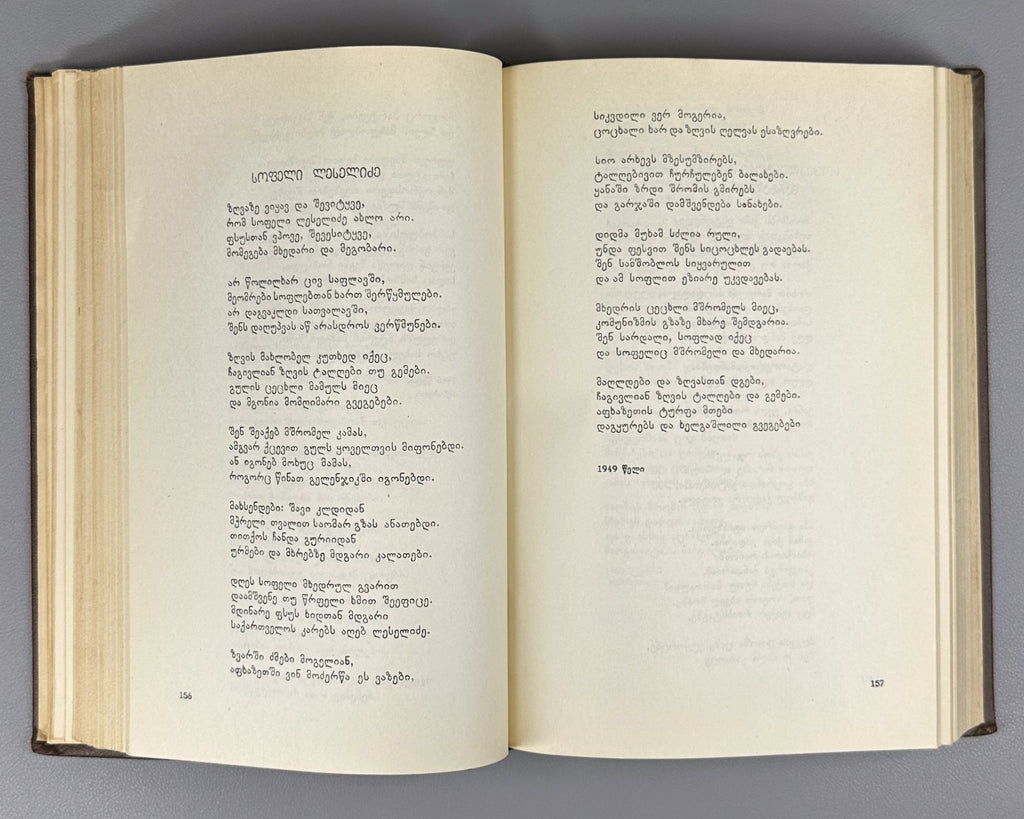 სოფელი ლესელიძე
ზღვაზე ვიყავ და შევიტყვე,
რომ სოფელი ლესელიძე ახლო არი.
ფსუსთან ვპოვე, შევესიტყვე,
მომეგება მხედარი და მეგობარი.
არ წოლილხარ ცივ საფლავში,
მეომრები სოფლებთან ხართ შერწყმულები.
არ დაგვაკლდი სათვალავში,
შენს დაღუპვას აწ არასდროს ვერწმუნები.
ზღვის მახლობელ კუთხედ იქეც,
ჩაგივლიან ზღვის ტალღები თუ გემები.
გულის ცეცხლი მამულს მიეც
და მგონია მომღიმარი გვეგებები.
შენ შეაქებ მშრომელ კამას,
ამგვარ ქცევით გულს ყოველთვის მიფონებდი.
ან იგონებ მოხუც მამას,
როგორც წინათ გელენჯიკში იგონებდი.
მახსენდები: შავი კლდიდან
მჭრელი თვალით საომარ გზას ანათებდი.
თითქოს ჩანდა გურიიდან
ურმები და მხრებზე მდგარი კალათები.
დღეს სოფელი მხედრულ გვარით
დაამშვენე თუ წრფელი ხმით შეეფიცე.
მდინარე ფსუს ხიდთან მდგარი
საქართველოს კარებს აღებ ლესელიძე.
ზვარში ძმები მოგელიან,
აფხაზეთში ვინ მოძერწა ეს ვაზები,
156
სიკვდილი ვერ მოგერია,
ცოცხალი ხარ და ზღვის ღელვას ესაზღვრები.
სიო არხევს მზესუმზირებს,
ტალღებივით ჩურჩულებენ ბალახები.
ყანაში ზრდი შრომის გმირებს
და გარჯაში დამშვენდება სანახები.
დიდმა მუხამ სძლია რული,
უნდა ფესვით შენს სიცოცხლეს გადაებას.
შენ სამშობლოს სიყვარულით
და ამ სოფლით ეზიარე უკვდავებას.
მხედრის ცეცხლი მშრომელს მიეც,
კომუნიზმის გზაზე მხარე შემდგარია.
შენ სარდალი, სოფლად იქეც
და სოფელიც მშრომელი და მხედარია.
მაღლდები და ზღვასთან დგები,
ჩაგივლიან ზღვის ტალღები და გემები.
აფხაზეთის ტურფა მთები
დაგყურებს და ხელგაშლილი გვეგებები
1949 წელი
157